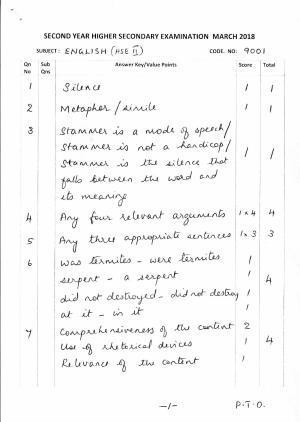 SECOND YEAR HIGHER SECONDARY EXAMINATION MARCH 2018
SUBJECT: ENGLISH (HSE II) CODE. NO: 9001
Qn No Sub Qns Answer Key/Value Points Score Total
1 Silence 1 1
2 Metaphor / simile 1 1
3 Stammer is a mode of speech/
Stammer is not a handicap/
Stammer is the silence that 1 1
falls between the word and
its meaning
4 Any four relevant arguments 1x4 4
5 Any three appropriate sentences 1x3 3
6 was termites - were termites 1
serpent - a serpent 1 4
did not destroyed - did not destroy 1
at it - in it 1
7 Comprehensiveness of the content 2
Use of rhetorical devices 1 4
Relevance of the content 1
-1- P.T.O.